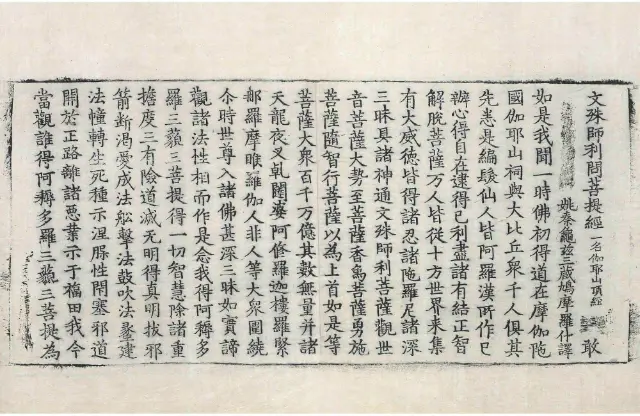 文殊師利問菩提經 一名伽耶山頂經 敢
姚秦龜玆三藏鳩摩羅什譯
如是我聞一時佛初得道在摩伽陁
國伽耶山祠與大比丘衆千人俱其
先悉是編髮仙人皆阿羅漢所作已
辦心得自在逮得已利盡諸有結正智
解脫菩薩万人皆從十方世界來集
有大威德皆得諸忍諸陁羅尼諸深
三昧具諸神通文殊師利菩薩觀世
音菩薩大勢至菩薩香象菩薩勇施
菩薩隨智行菩薩以爲上首如是等
菩薩大衆百千万億其數無量幷諸
天龍夜叉乹闥婆阿脩羅迦樓羅緊
那羅摩睺羅伽人非人等大衆圍繞
尒時世尊入諸佛甚深三昧如實諦
觀諸法性相而作是念我得阿耨多
羅三藐三菩提得一切智慧除諸重
擔度三有險道滅无明得真明拔邪
箭斷渴愛成法舩擊法鼓吹法䗍建
法幢轉生死種示涅脲性閇塞邪道
開於正路離諸惡業示于福田我今
當觀誰得阿耨多羅三藐三菩提爲